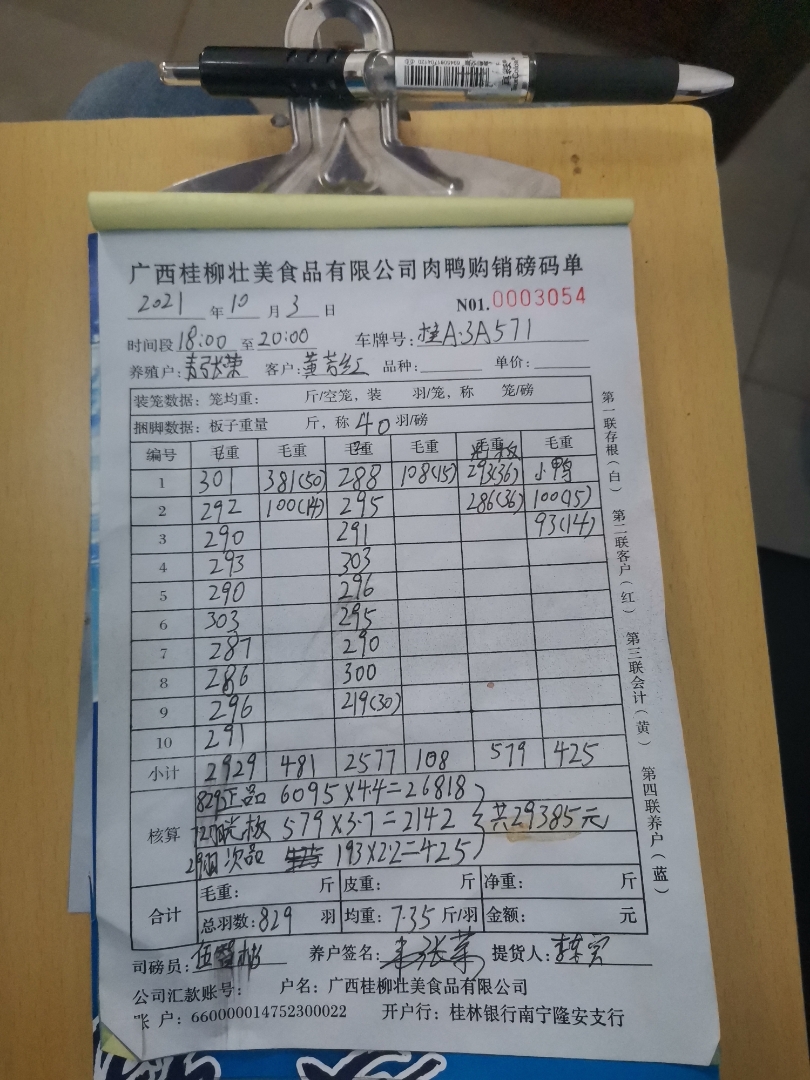 广西桂柳壮美食品有限公司肉鸭购销磅码单
2021 年 10 月 3 日 N01. 0003054
时间段 18:00 至 20:00 车牌号: 桂A·3A571
养殖户: 客户: 品种: 单价:
装笼数据: 笼均重: 斤/空笼, 装 羽/笼, 称 笼/磅
捆脚数据: 板子重量 斤, 称 40 羽/磅
编号 毛重 毛重 毛重 毛重 毛重 毛重
1 301 381(50) 288 108(15) 293(36) 小鸭
2 292 100(14) 295 286(36) 100(15)
3 290 291 93(14)
4 293 303
5 290 296
6 303 295
7 287 290
8 286 300
9 296 219(30)
10 291
小计 2929 481 2577 108 579 425
核算
829正品 6095×4.4=26818
板 579×3.7=2142 共29385元
29羽 次品 193×2.2=425
合计
毛重: 斤 皮重: 斤 净重: 斤
总羽数: 829 羽 均重: 7.35 斤/羽 金额: 元
司磅员: 养户签名: 提货人:
公司汇款账号: 户名: 广西桂柳壮美食品有限公司
账 户: 660000014752300022 开户行: 桂林银行南宁隆安支行
第一联存根(白) 第二联客户(红) 第三联会计(黄) 第四联养户(蓝)